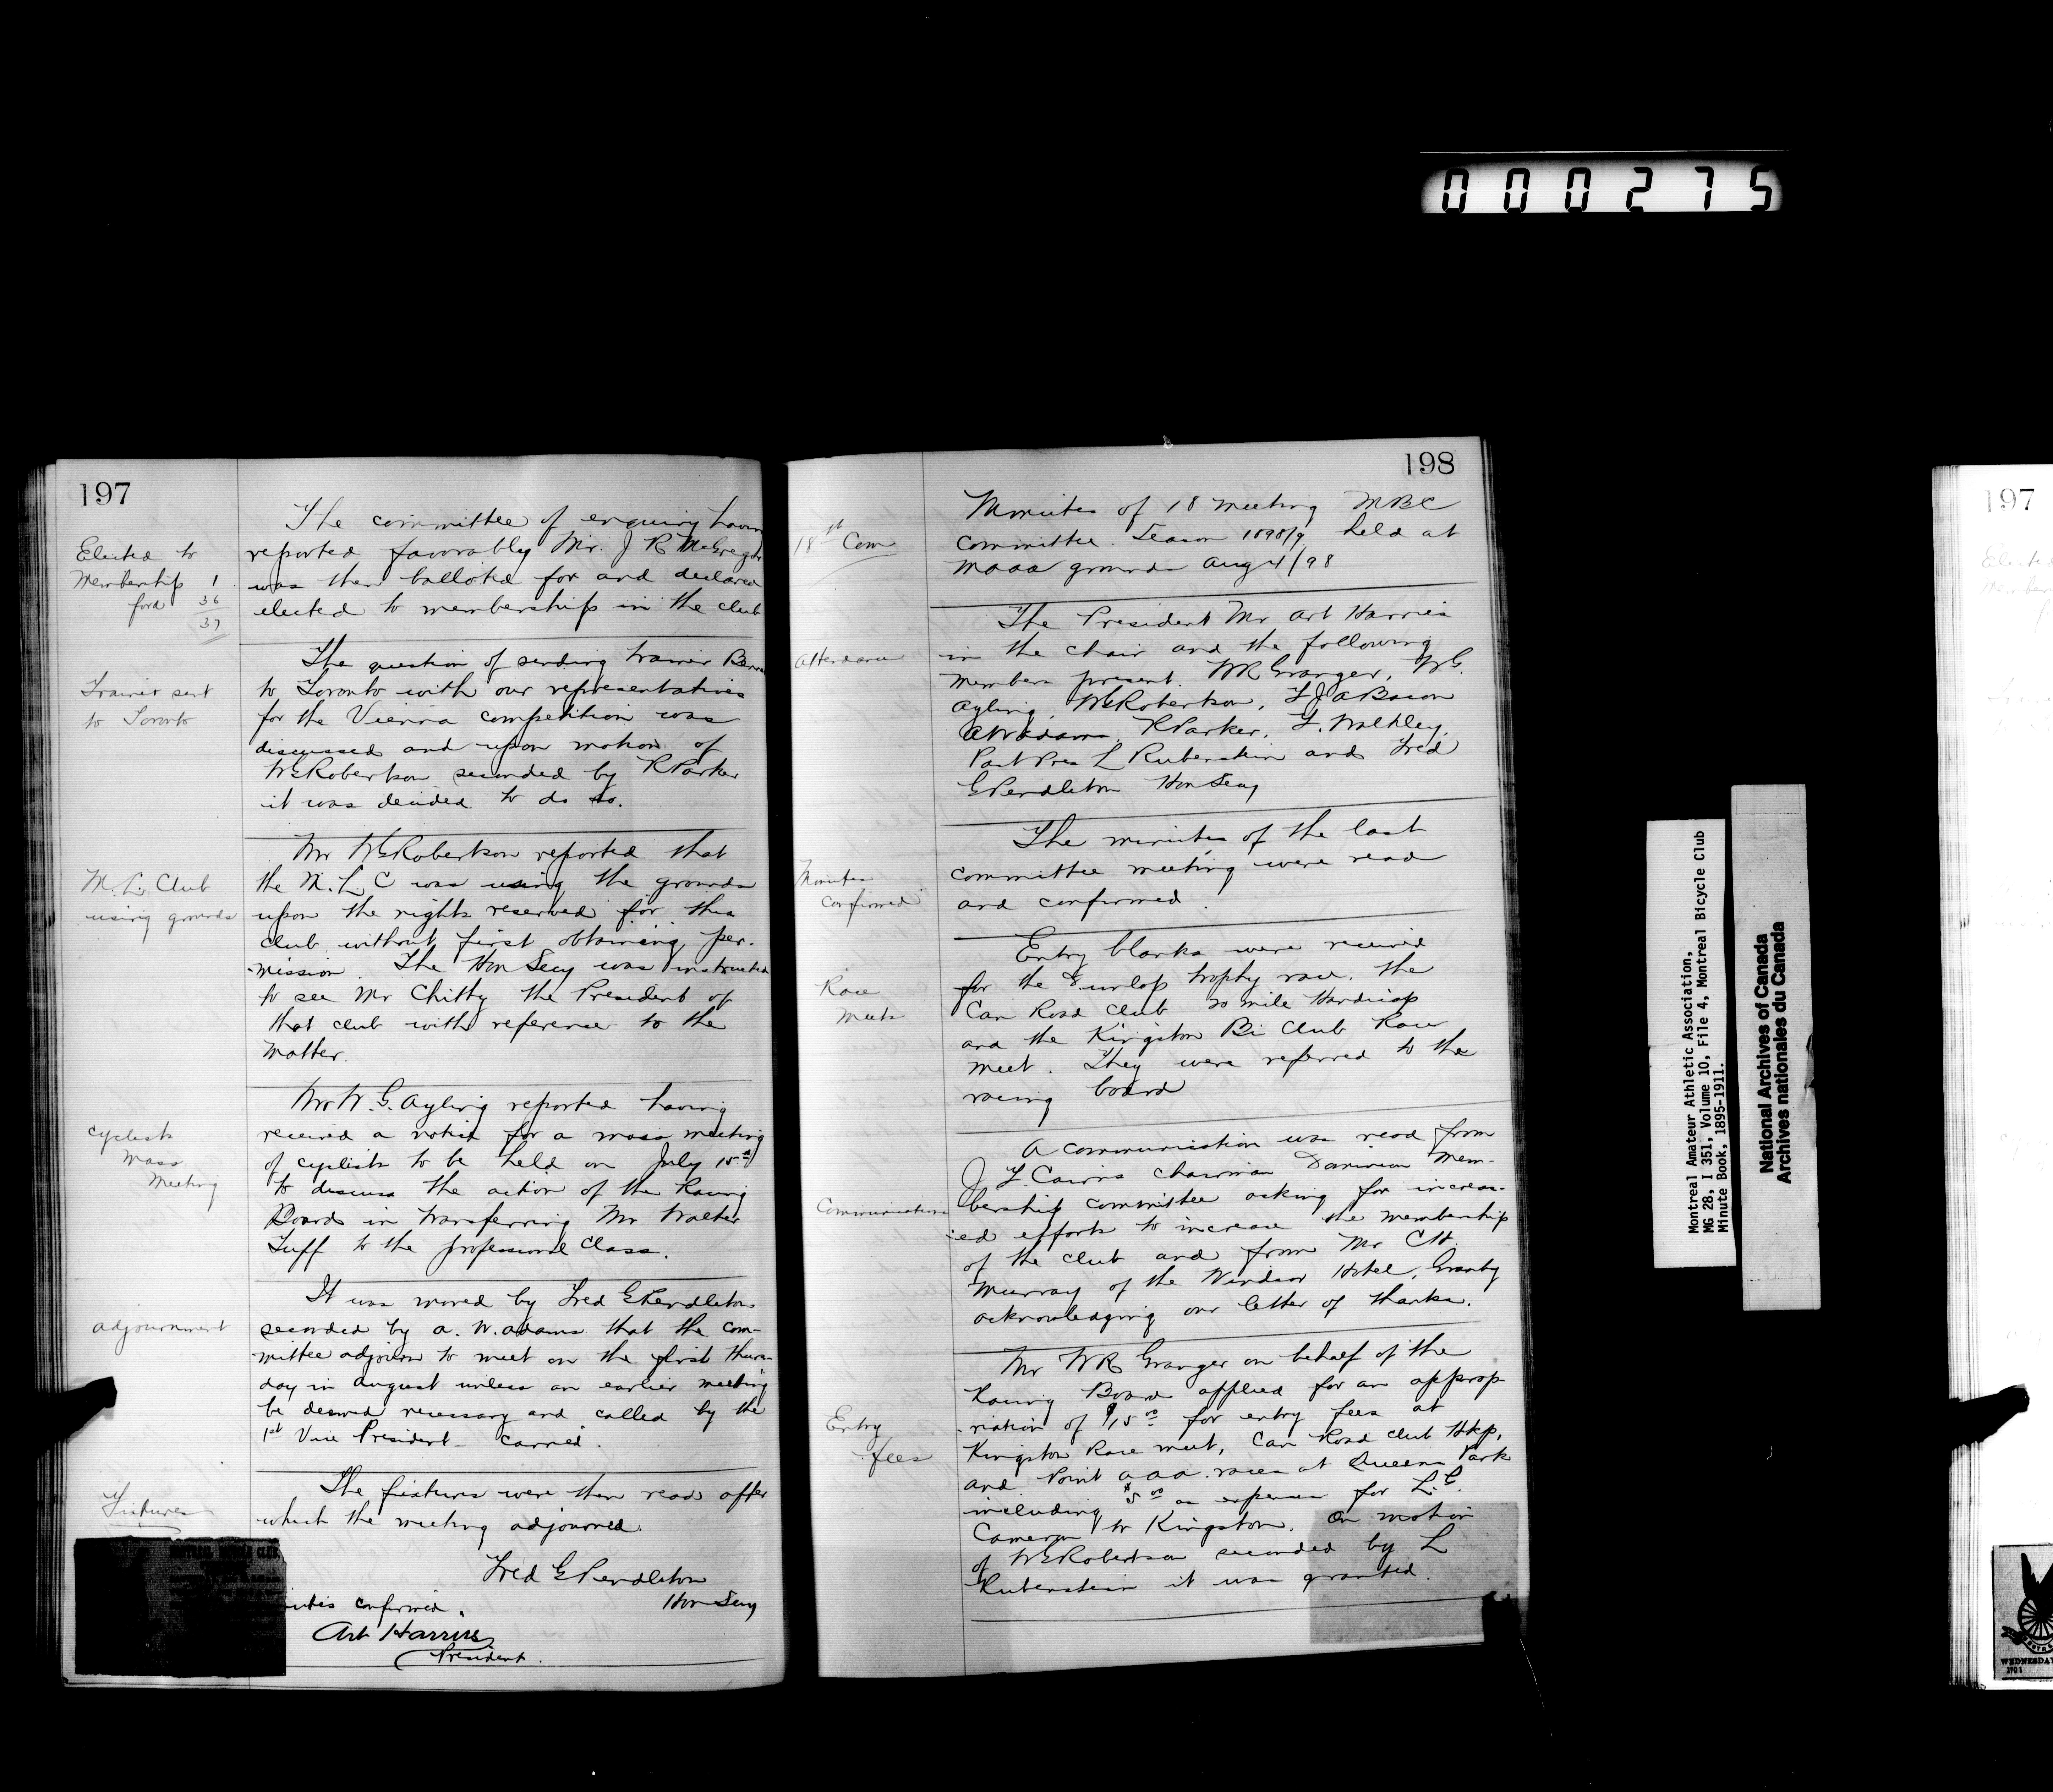 000275
197
Elected to
Membership 1
ford 36
37
The committee of enquiry having
reported favorably Mr. J R McGregor
was then balloted for and declared
elected to membership in the club
Trainer sent
to Toronto
The question of sending trainer
to Toronto with our representatives
for the Vienna competition was
discussed and upon motion of
W G Robertson seconded by R Parker
it was decided to do so.
M. L. Club
using grounds
Mr W G Robertson reported that
the M. L C was using the grounds
upon the nights reserved for this
club without first obtaining per-
mission. The Hon Secy was instructed
to see Mr Chitty the President of
that club with reference to the
matter.
Cyclists
Mass
Meeting
Mr W. G. Ayling reported having
received a notice for a mass meeting
of cyclists to be held on July 15th
to discuss the action of the Racing
Board in transferring Mr Walter
Tuff to the professional class.
adjournment
It was moved by Fred G Pendleton
seconded by A. W. Adams that the com-
mittee adjourn to meet on the first Thurs-
day in August unless an earlier meeting
be deemed necessary and called by the
1st Vice President - Carried.
Fixtures
The fixtures were then read after
which the meeting adjourned.
Fred G Pendleton
Hon Secy
nutes confirmed.
Art Harries
President.
198
18st Com
Minutes of 18 meeting MBC
Committee. Season 1898/9 held at
MAAA grounds Aug 4/98
Attendance
The President Mr Art Harries
in the chair and the following
members present. W R Granger, W G.
Ayling, W G Robertson, F J A Bacon
A W Adams, R Parker, F. Walkley,
Past Pres L Rubenstein and Fred
G Pendleton Hon Secy
Minutes
confirmed
The minutes of the last
committee meeting were read
and confirmed.
Race
Meets
Entry blanks were received
for the Dunlop trophy race. The
Can Road Club 20 mile Handicap
and the Kingston Bi Club Race
meet. They were referred to the
racing board
Communications
A communication was read from
J. F. Cairns Chairman Dominion Mem-
bership Committee asking for increas-
-ed efforts to increase the membership
of the club and from Mr C H.
Murray of the Windsor Hotel, Granby
acknowledging our letter of thanks.
Entry
fees
Mr W R Granger on behalf of the
Racing Board applied for an approp-
-riation of $15 00 for entry fees at
Kingston Race meet, Can Road Club Hkp,
and Point AAA. races at Queens Park
including $5 00 as expenses for L. G.
Cameron to Kingston. On motion
of W G Robertson seconded by L
Rubenstein it was granted.
Montreal Amateur Athletic Association,
MG 28, I 351, Volume 10, File 4, Montreal Bicycle Club
Minute Book, 1895-1911.
National Archives of Canada
Archives nationales du Canada
197
Elected
Member
WEDNESDAY